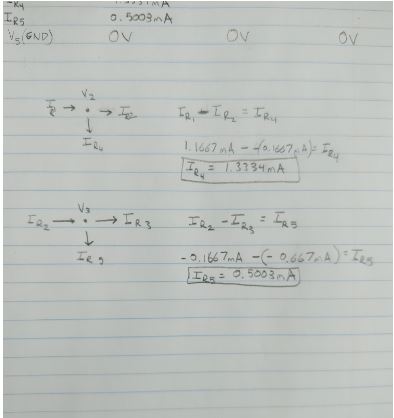 IR5 0.5003mA
V5(GND) 0V 0V 0V
V2
→ • →
↓
IR4
IR1 - IR2 = IR4
1.1667mA - -(0.1667mA) = IR4
IR4 = 1.3334mA
V3
IR2 → • → IR3
↓
IR5
IR2 - IR3 = IR5
-0.1667mA - (-0.667mA) = IR5
IR5 = 0.5003mA